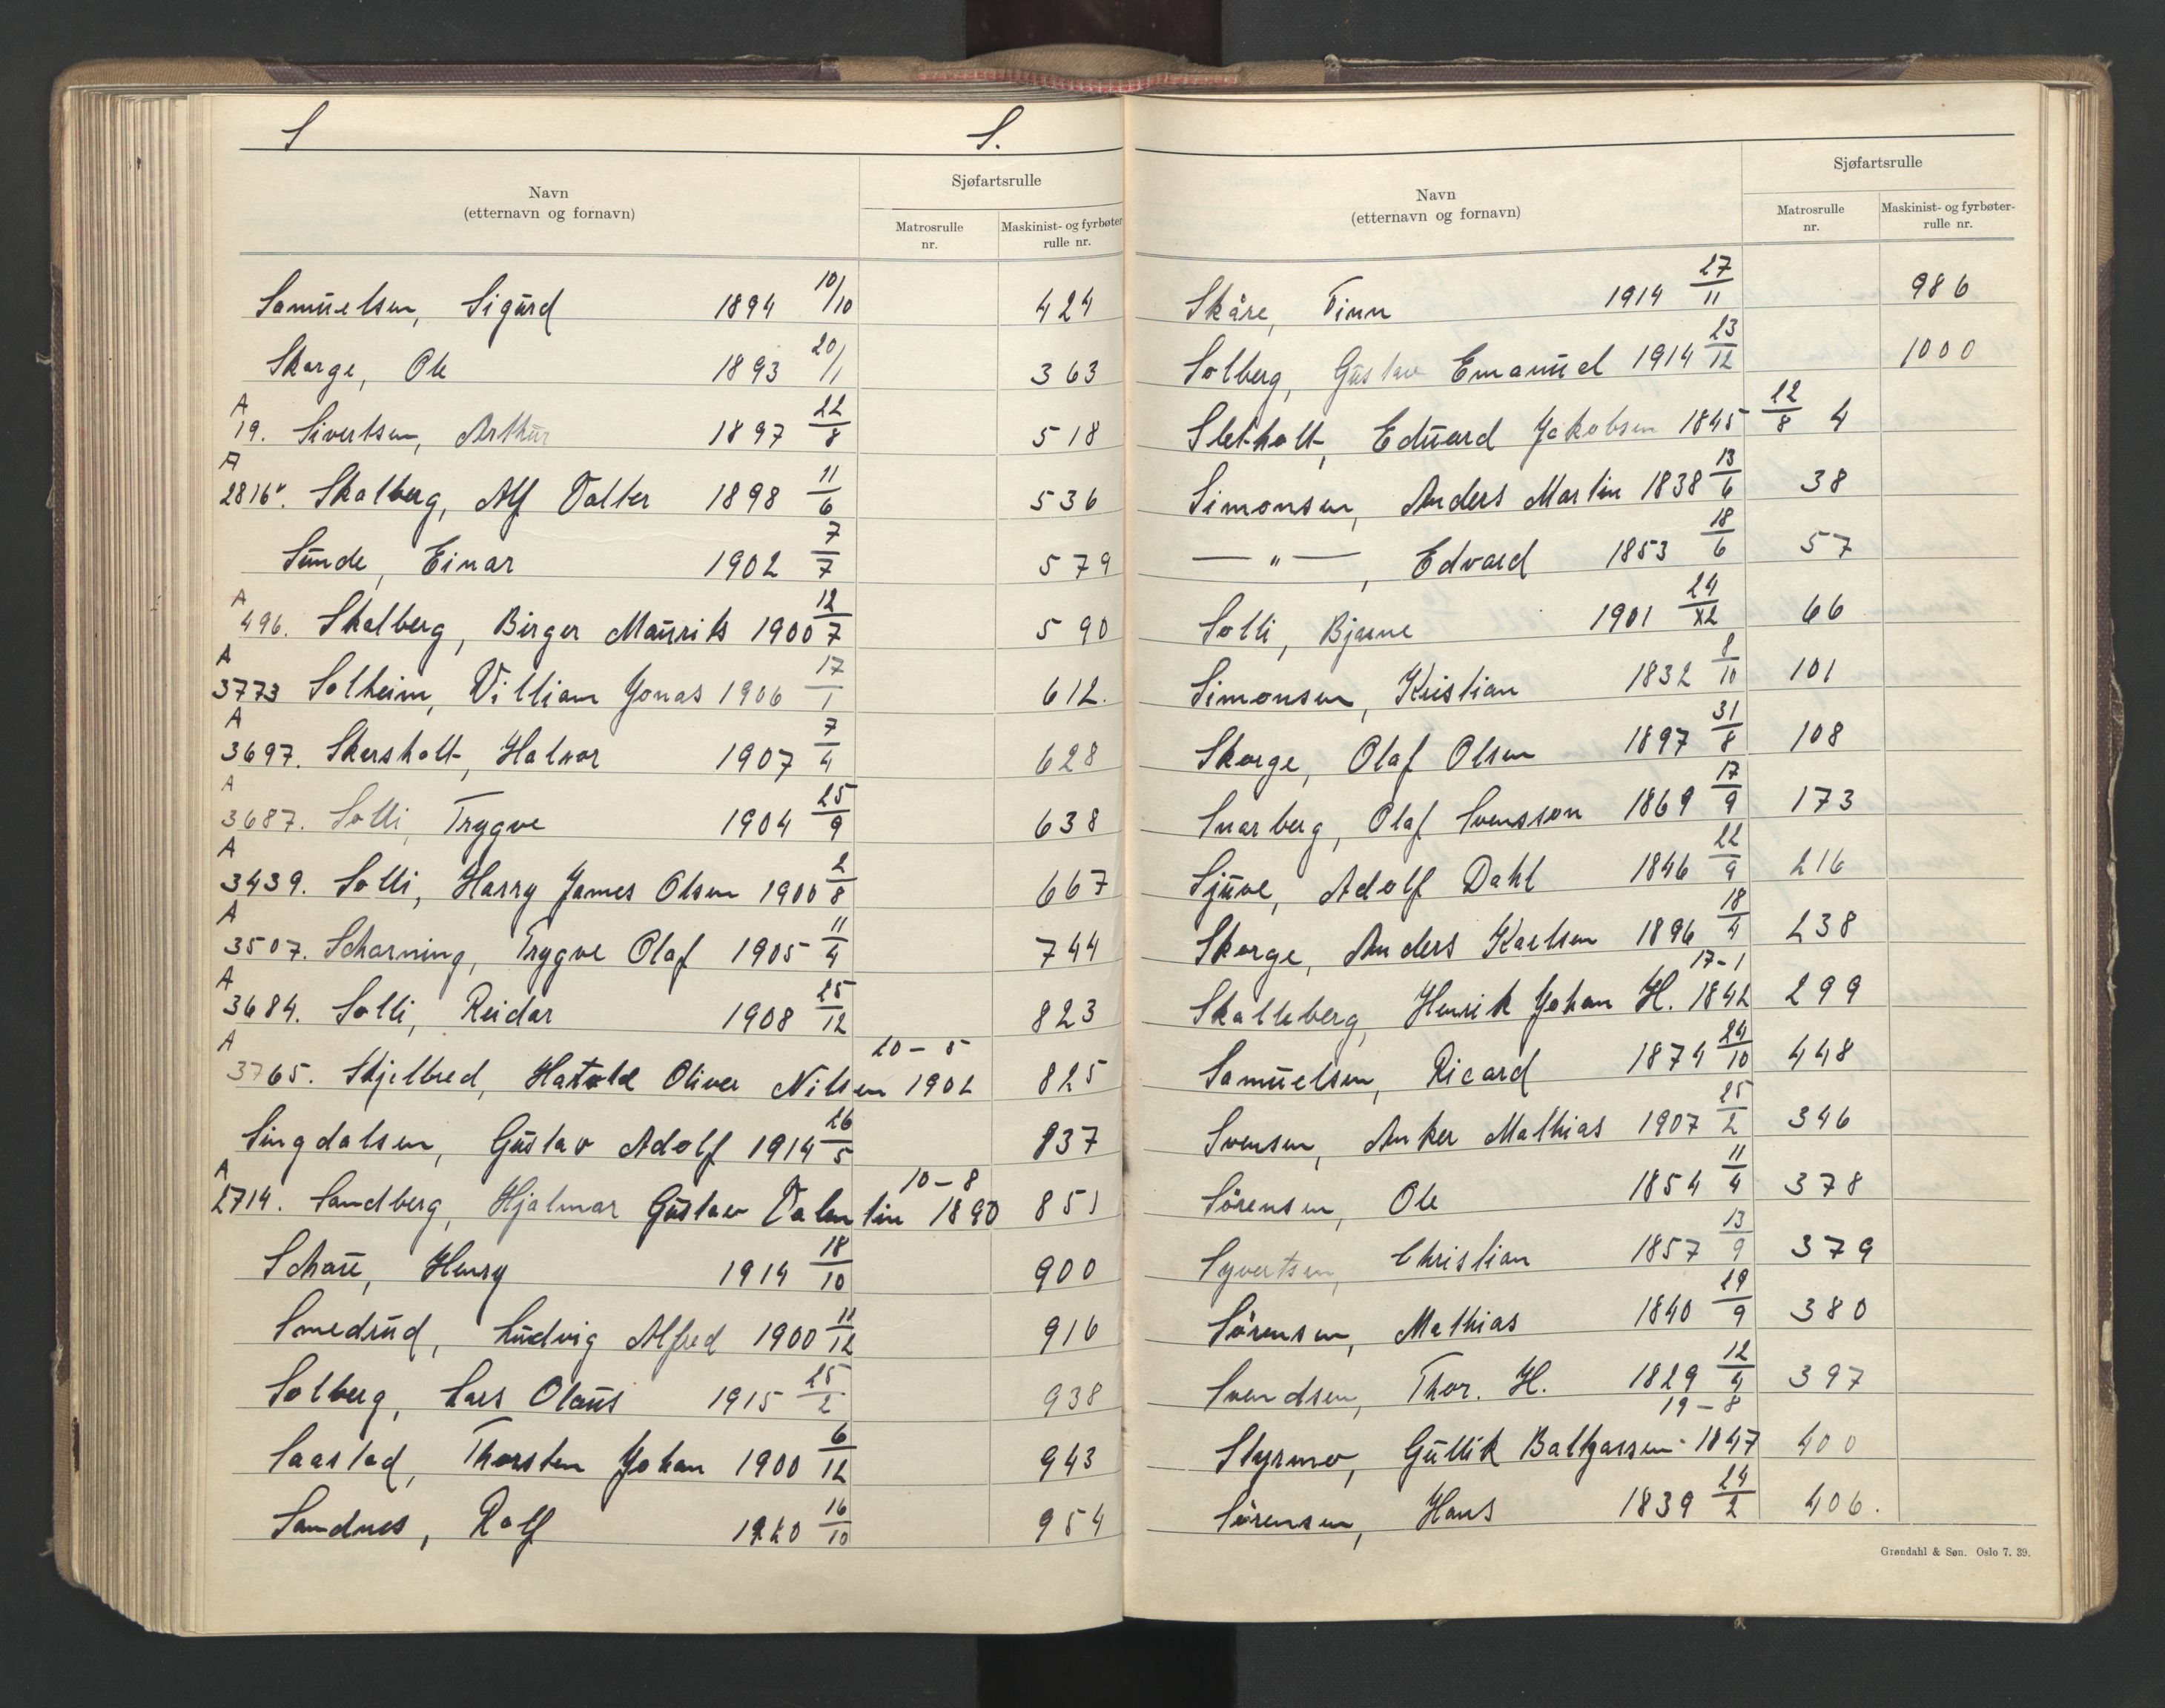 S S.
Navn
(etternavn og fornavn)
Sjøfartsrulle
Matrosrulle nr.
Maskinist- og fyrbøter rulle nr.
Samuelsen, Sigurd 1894 10/10 424
Skorge, Ole 1893 20/1 363
A 19. Sivertsen, Arthur 1897 22/8 518
A 2816. Skalberg, Alf Valter 1898 11/6 536
Sunde, Einar 1902 7/7 579
A 496. Skalberg, Birger Maurits 1900 12/7 590
A 3773 Solheim, Villiam Jonas 1906 17/1 612.
A 3697. Skarsholt, Halvor 1907 7/4 628
A 3687. Solli, Trygve 1904 25/9 638
A 3439. Solli, Harry James Olsen 1900 2/8 667
A 3507. Scharning, Trygve Olaf 1905 11/4 744
A 3684. Solli, Reidar 1908 25/12 823
A 3765. Skjelbred, Harald Oliver Nilsen 20-5 1902 825
Singdalsen, Gustav Adolf 1914 26/5 837
A 2714. Sandberg, Hjalmar Gustav Valentin 10-8 1890 851
Schau, Henry 1914 18/10 900
Smedsud, Ludvig Alfred 1900 11/12 916
Solberg, Lars Olaus 1915 25/2 938
Saastad, Thorsten Johan 1900 6/12 943
Sandnes, Rolf 1920 16/10 954
Navn
(etternavn og fornavn)
Sjøfartsrulle
Matrosrulle nr.
Maskinist- og fyrbøter- rulle nr.
Skåre, Finn 1914 27/11 986
Solberg, Gustav Emanuel 1914 23/12 1000
Sletholt, Edvard Jakobsen 1845 22/8 4
Simonsen, Anders Martin 1838 13/6 38
— " —, Edvard 1853 18/6 57
Solli, Bjarne 1901 24/12 66
Simonsen, Kristian 1832 8/10 101
Skorge, Olaf Olsen 1897 31/8 108
Snarberg, Olaf Svensson 1869 17/9 173
Sjuve, Adolf Dahl 1846 22/9 216
Skorge, Anders Karlsen 1896 18/4 238
Skalleberg, Henrik Johan H. 17-1 1842 299
Samuelsen, Ricard 1874 24/10 448
Svensen, Anker Mathias 1907 25/2 346
Sørensen, Ole 1854 11/4 378
Syvertsen, Christian 1857 13/9 379
Sørensen, Mathias 1840 29/9 380
Svendsen, Thor. H. 1829 12/4 397
Styrmo, Gullik Baltzarsen 19-8 1847 400
Sørensen, Hans 1839 24/2 406.
Grøndahl & Søn. Oslo 7. 39.